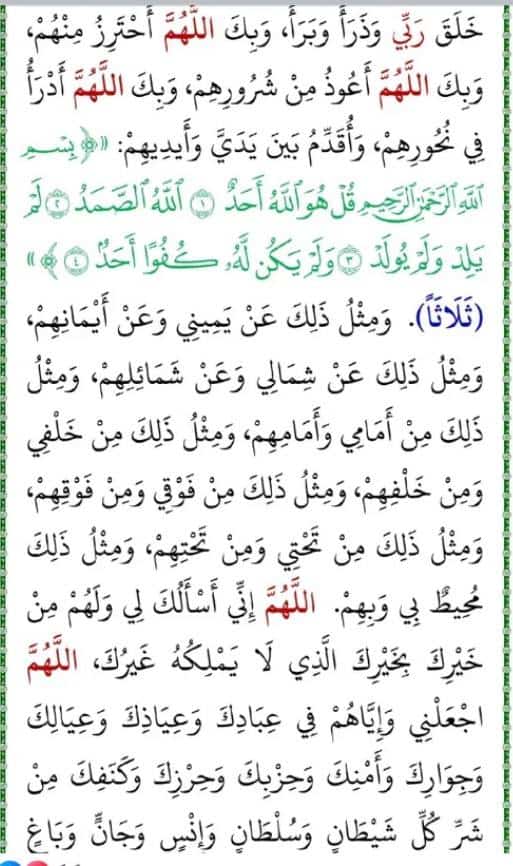 خَلَقَ رَبِّي وَذَرَأَ وَبَرَأَ، وَبِكَ اللَّهُمَّ أَحْتَرِزُ مِنْهُمْ،
وَبِكَ اللَّهُمَّ أَعُوذُ مِنْ شُرُورِهِمْ، وَبِكَ اللَّهُمَّ أَدْرَأُ
فِي نُحُورِهِمْ، وَأُقَدِّمُ بَيْنَ يَدَيَّ وَأَيدِيهِمْ: «﴿بِسْمِ
اللَّهِ الرَّحْمَٰنِ الرَّحِيمِ قُلْ هُوَ اللَّهُ أَحَدٌ ١ اللَّهُ الصَّمَدُ ٢ لَمْ
يَلِدْ وَلَمْ يُولَدْ ٣ وَلَمْ يَكُن لَّهُۥ كُفُوًا أَحَدٌ ٤﴾»
(ثَلَاثَاً). وَمِثْلُ ذَلِكَ عَنْ يَمِينِي وَعَنْ أَيْمَانِهِمْ،
وَمِثْلُ ذَلِكَ عَنْ شِمَالِي وَعَنْ شَمَائِلِهِمْ، وَمِثْلُ
ذَلِكَ مِنْ أَمَامِي وَأَمَامِهِمْ، وَمِثْلُ ذَلِكَ مِنْ خَلْفِي
وَمِنْ خَلْفِهِمْ، وَمِثْلُ ذَلِكَ مِنْ فَوْقِي وَمِنْ فَوْقِهِمْ،
وَمِثْلُ ذَلِكَ مِنْ تَحْتِي وَمِنْ تَحْتِهِمْ، وَمِثْلُ ذَلِكَ
مُحِيطٌ بِي وَبِهِمْ. اللَّهُمَّ إِنِّي أَسْأَلُكَ لِي وَلَهُمْ مِنْ
خَيْرِكَ بِخَيْرِكَ الَّذِي لَا يَمْلِكُهُ غَيرُكَ، اللَّهُمَّ
اجْعَلْنِي وَإِيَّاهُمْ فِي عِبَادِكَ وَعِيَاذِكَ وَعِيَالِكَ
وَجِوَارِكَ وَأَمْنِكَ وَحِزْبِكَ وَحِرْزِكَ وَكَنَفِكَ مِنْ
شَرِّ كُلِّ شَيْطَانٍ وَسُلْطَانٍ وَإِنْسٍ وَجَانٍّ وَبَاغٍ